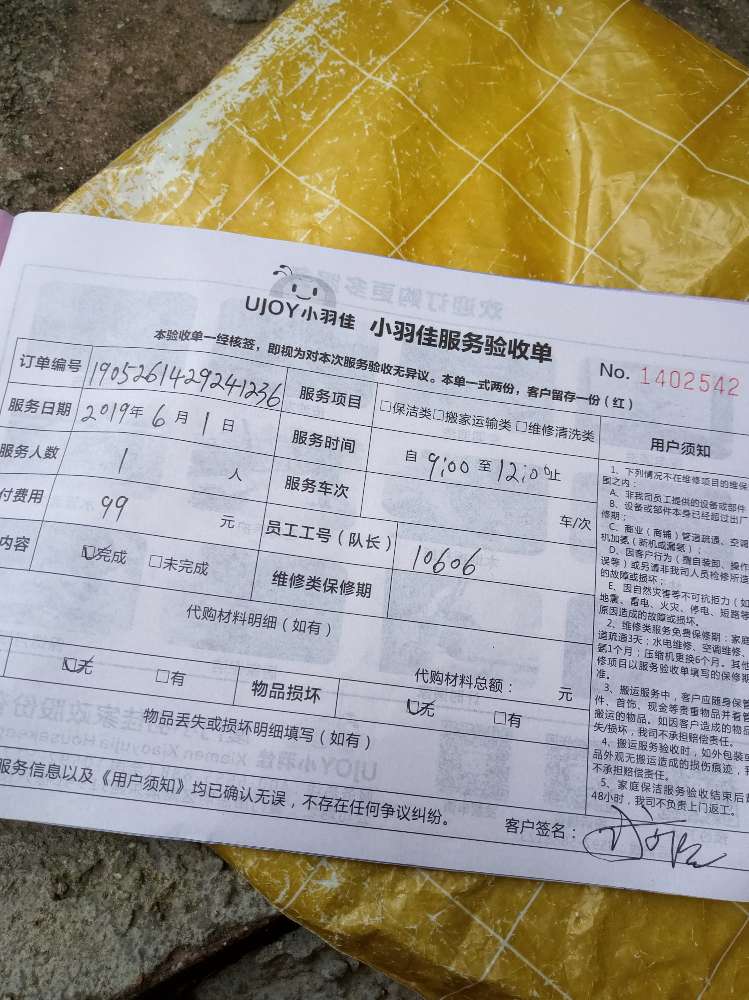 UJOY小羽佳 小羽佳服务验收单
本验收单一经核签，即视为对本次服务验收无异议。本单一式两份，客户留存一份（红）
No. 1402542
订单编号 1905261429241236 服务项目 □保洁类□搬家运输类 □维修清洗类
服务日期 2019年 6 月 1 日 服务时间 自 9:00 至 12:00止
服务人数 1 人 服务车次 车/次
付费用 99 元 员工工号（队长） 10606
内容 ☑完成 □未完成 维修类保修期
代购材料明细（如有）
代购材料总额： 元
☑无 □有 物品损坏 ☑无 □有
物品丢失或损坏明细填写（如有）
服务信息以及《用户须知》均已确认无误，不存在任何争议纠纷。
客户签名：
用户须知
1、下列情况不在维修项目的维保
围之内：
A、非我司员工提供的设备或部件
B、设备或部件本身已经超过出厂
修期；
C、商业（商铺）管道疏通、空调
机加氨（新机或漏氨）；
D、因客户行为（擅自装卸、操作
误等）或另请非我司人员检修所造
的故障或损坏；
E、因自然灾害等不可抗拒力（如
地震、蓄电、火灾、停电、短路等
原因造成的故障或损坏。
2、维修类服务免费保修期：家庭
道疏通3天；水电维修、空调维修、
氨1个月；压缩机更换6个月。其他
修项目以服务验收单填写的保修期
准。
3、搬运服务中，客户应随身保管
件、首饰、现金等贵重物品并看管
搬运的物品。如因客户造成的物品
失/损坏，我司不承担赔偿责任。
4、搬运服务验收时，如外包装或
品外观无搬运造成的损伤痕迹，我
不承担赔偿责任。
5、家庭保洁服务验收结束后超
48小时，我司不负责上门返工。